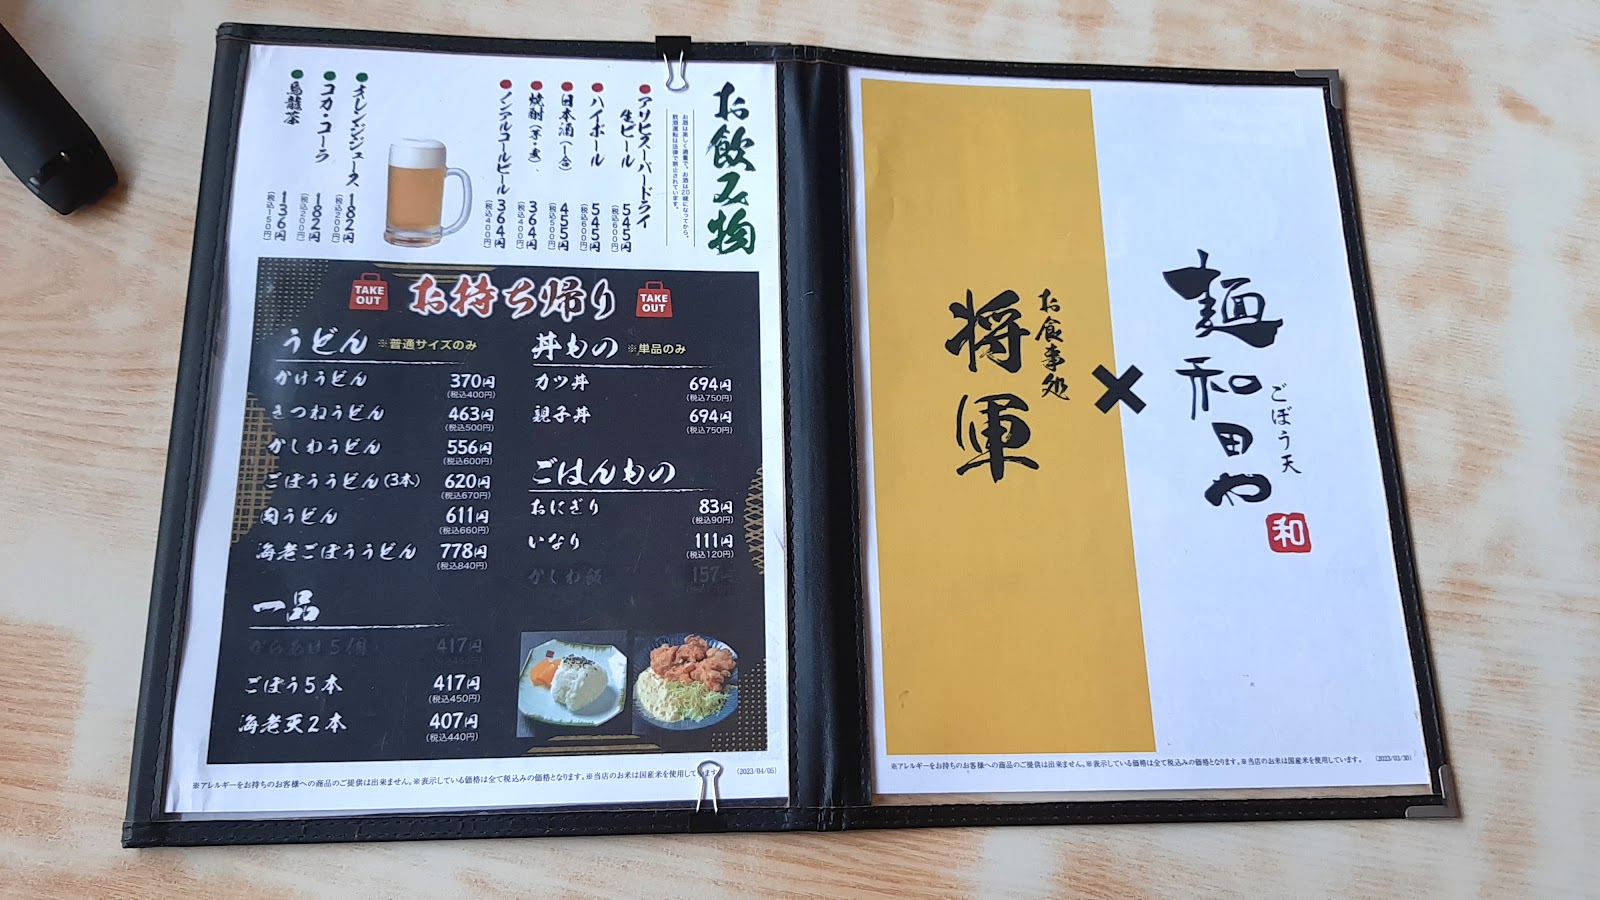 お飲み物
お酒は楽しく適量で。お酒は20歳になってから。
飲酒運転は法律で禁止されています。
アサヒスーパードライ
生ビール
545円
(税込600円)
ハイボール
545円
(税込600円)
日本酒(一合)
455円
(税込500円)
焼酎(芋・麦)
364円
(税込400円)
ノンアルコールビール
364円
(税込400円)
オレンジジュース
182円
(税込200円)
コカ・コーラ
182円
(税込200円)
烏龍茶
136円
(税込150円)
TAKE OUT
お持ち帰り
TAKE OUT
うどん ※普通サイズのみ
かけうどん 370円
(税込400円)
きつねうどん 463円
(税込500円)
かしわうどん 556円
(税込600円)
ごぼううどん(3本) 620円
(税込670円)
肉うどん 611円
(税込660円)
海老ごぼううどん 778円
(税込840円)
一品
からあげ5個 417円
(税込450円)
ごぼう5本 417円
(税込450円)
海老天2本 407円
(税込440円)
丼もの ※単品のみ
カツ丼 694円
(税込750円)
親子丼 694円
(税込750円)
ごはんもの
おにぎり 83円
(税込90円)
いなり 111円
(税込120円)
かしわ飯 157円
※アレルギーをお持ちのお客様への商品のご提供は出来ません。※表示している価格は全て税込みの価格となります。※当店のお米は国産米を使用しています。 (2023/04/05)
お食事処
将軍
×
麺和田や
ごぼう天
和
※アレルギーをお持ちのお客様への商品のご提供は出来ません。※表示している価格は全て税込みの価格となります。※当店のお米は国産米を使用しています。 (2023/03/30)